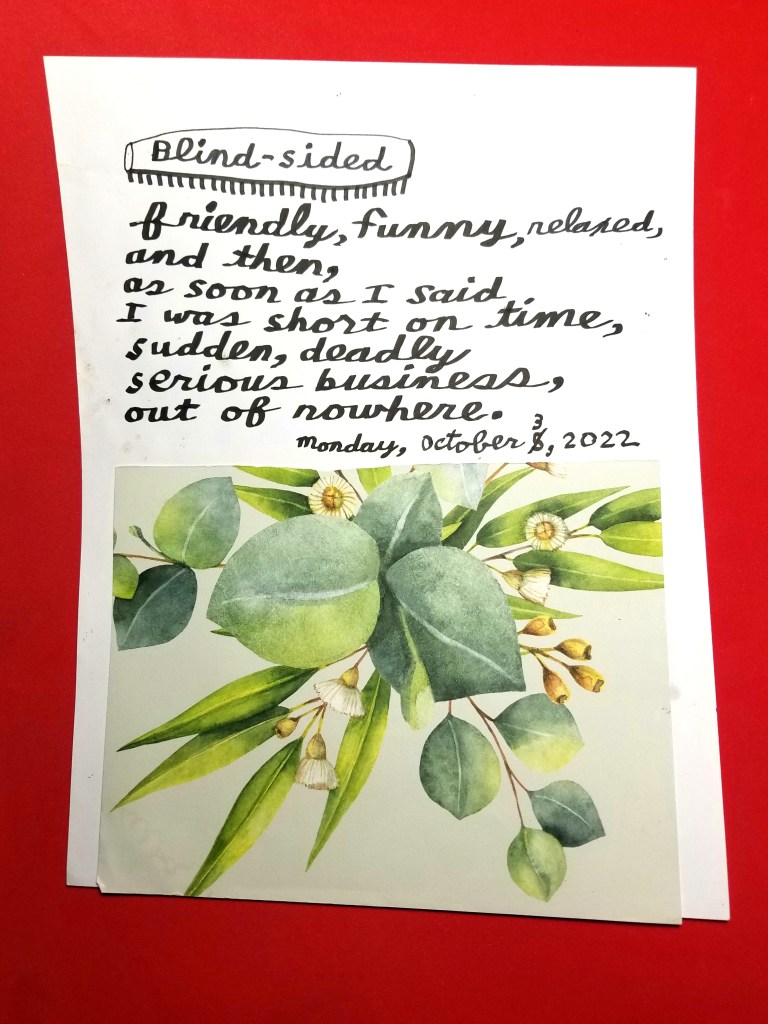 Blind-sided
friendly, funny, relaxed,
and then,
as soon as I said
I was short on time,
sudden, deadly
serious business,
out of nowhere.
monday, october 3, 2022